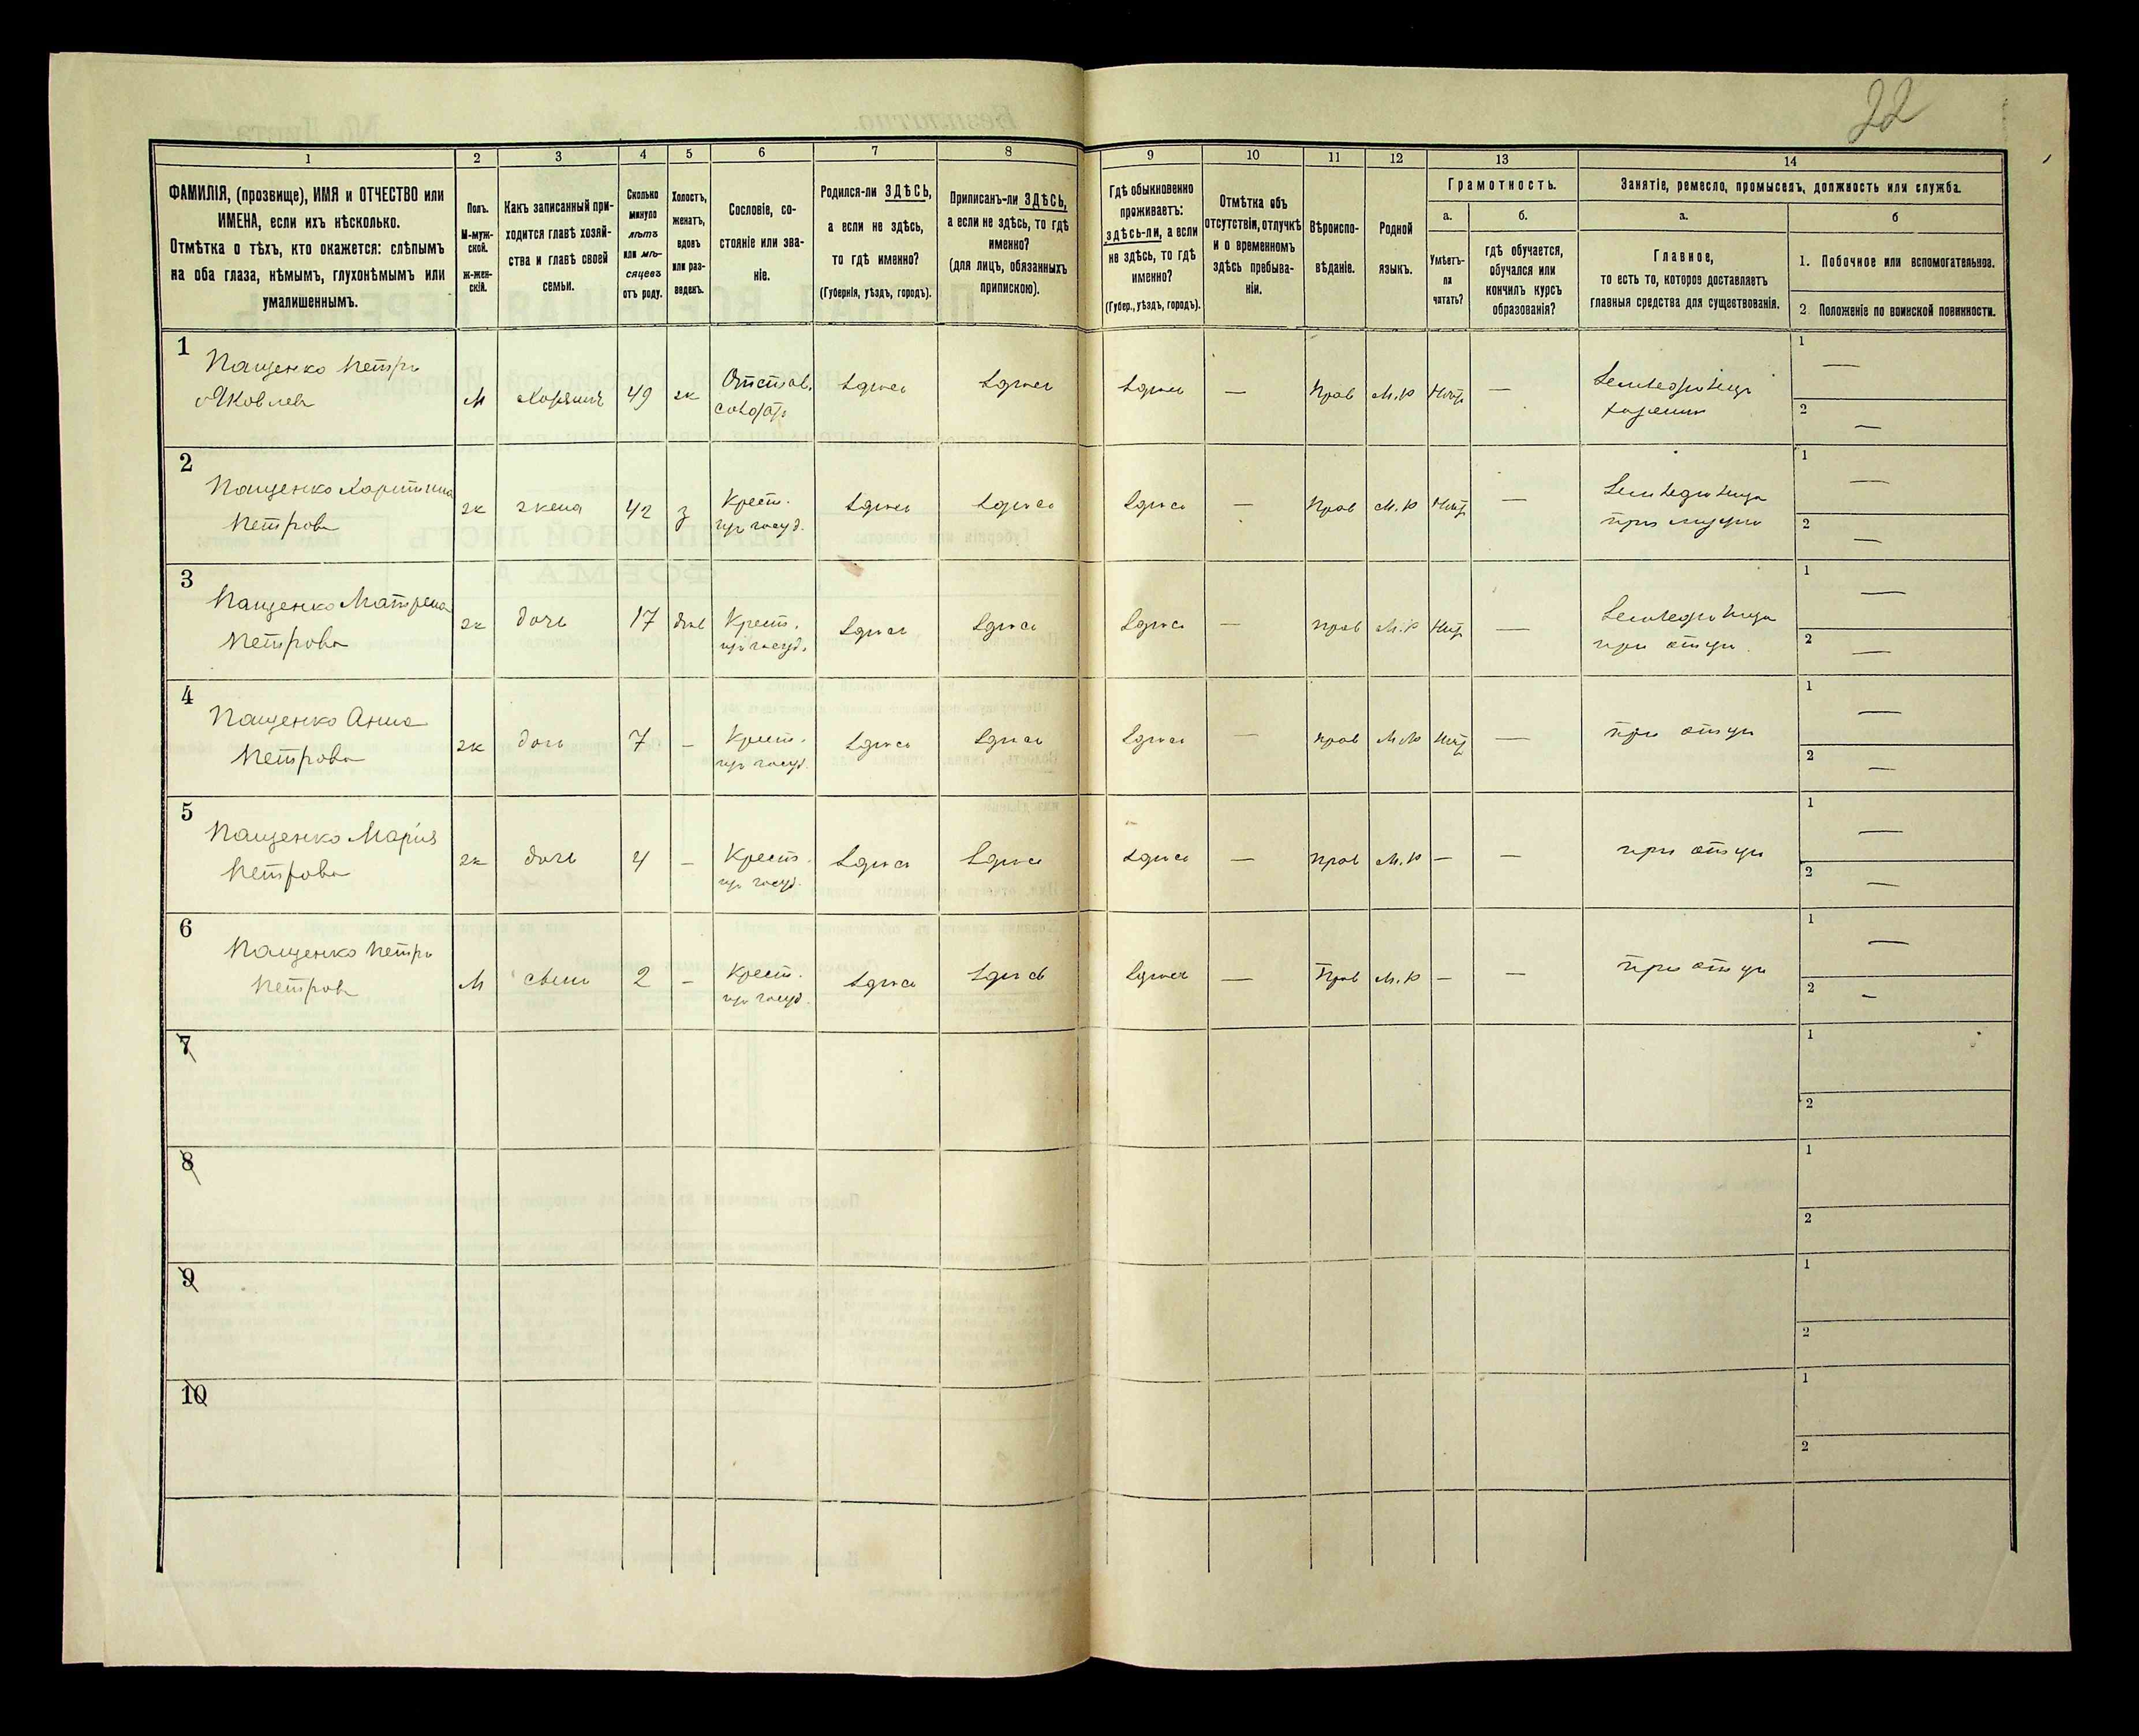 22
1
2
3
4
5
6
7
8
9
10
11
12
13
14
ФАМИЛІЯ, (прозвище), ИМЯ и ОТЧЕСТВО или
ИМЕНА, если ихъ нѣсколько.
Отмѣтка о тѣхъ, кто окажется: слѣпымъ
на оба глаза, нѣмымъ, глухонѣмымъ или
умалишеннымъ.
Полъ.
М-муж-
ской.
ж-жен-
скій.
Какъ записанный при-
ходится главѣ хозяй-
ства и главѣ своей
семьи.
Сколько
минуло
лѣтъ
или мѣ-
сяцевъ
отъ роду.
Холостъ,
женатъ,
вдовъ
или раз-
веденъ.
Сословіе, со-
стояніе или зва-
ніе.
Родился-ли ЗДѢСЬ,
а если не здѣсь,
то гдѣ именно?
(Губернія, уѣздъ, городъ).
Приписанъ-ли ЗДѢСЬ,
а если не здѣсь, то гдѣ
именно?
(для лицъ, обязанныхъ
припискою).
Гдѣ обыкновенно
проживаетъ:
здѣсь-ли, а если
не здѣсь, то гдѣ
именно?
(Губер., уѣздъ, городъ).
Отмѣтка объ
отсутствіи, отлучкѣ
и о временномъ
здѣсь пребыва-
ніи.
Вѣроиспо-
вѣданіе.
Родной
языкъ.
Грамотность.
а.
б.
Умѣетъ-
ли
читать?
гдѣ обучается,
обучался или
кончилъ курсъ
образованія?
Занятіе, ремесло, промыселъ, должность или служба.
а.
б
Главное,
то есть то, которое доставляетъ
главныя средства для существованія.
1. Побочное или вспомогательное.
2. Положеніе по воинской повинности.
1
Пащенко Петръ
Яковлевъ
М
Хозяинъ
49
ж
Отстав.
солдатъ
здѣсь
здѣсь
здѣсь
—
Прав
М.р
Нѣтъ
—
Земледѣлецъ
хозяинъ
1
—
2
—
2
Пащенко Харитина
Петрова
ж
жена
42
з
Крест.
из госуд.
здѣсь
здѣсь
здѣсь
—
Прав
М.р
Нѣтъ
—
Земледѣлица
при мужѣ
1
—
2
—
3
Пащенко Матрена
Петрова
ж
дочь
17
дѣв
Крест.
из госуд.
здѣсь
здѣсь
здѣсь
—
прав
М.р
Нѣтъ
—
Земледѣлица
при отцѣ
1
—
2
—
4
Пащенко Анна
Петрова
ж
дочь
7
—
Крест.
из госуд.
здѣсь
здѣсь
здѣсь
—
прав
М.р
Нѣтъ
—
при отцѣ
1
—
2
—
5
Пащенко Марія
Петрова
ж
дочь
4
—
Крест.
из госуд.
здѣсь
здѣсь
здѣсь
—
прав
М.р
—
—
при отцѣ
1
—
2
—
6
Пащенко Петръ
Петровъ
М
сынъ
2
—
Крест.
из госуд.
здѣсь
здѣсь
здѣсь
—
Прав
М.р
—
—
при отцѣ
1
—
2
—
7
1
2
8
1
2
9
1
2
10
1
2